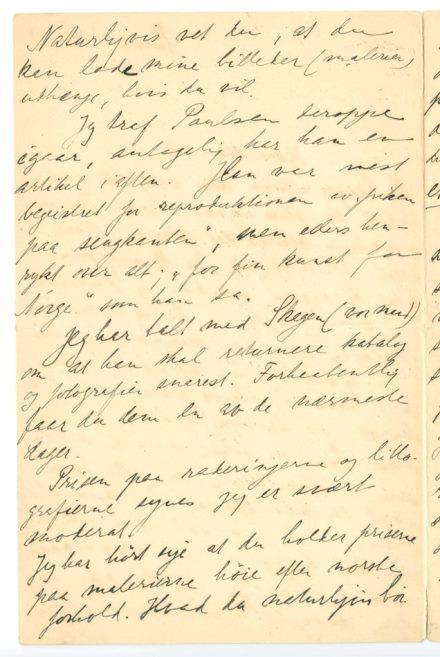 Naturligvis vet du, at du
kan lade mine billeder (malerier)
udhænge, hvis du vil.
Jeg traf Paulsen deroppe
igaar, antagelig har han en
artikel i aften. Han var mest
begeistret for reproduktionen av „piken
paa sengkanten", men ellers hen-
rykt over alt; „for fin kunst for
Norge" som han sa.
Jeg har talt med Skagen (vor mand)
om at han skal returnere katalog
og fotografier snarest. Forhaabentlig
faar du dem en av de nærmeste
dager.
Prisen paa raderingerne og litto-
grafierne synes jeg er svært
moderat.
Jeg har hørt sije at du holder priserne
paa malerierne høie efter norske
forhold. Hvad du naturligvis bør.